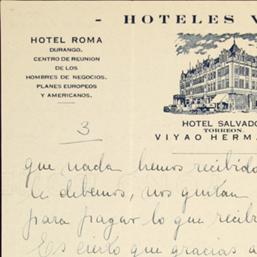 - HOTELES V
HOTEL ROMA
DURANGO.
CENTRO DE REUNION
DE LOS
HOMBRES DE NEGOCIOS.
PLANES EUROPEOS
Y AMERICANOS.
HOTEL SALVADO
TORREON
VIYAO HERMA
3
que nada hemos recibido
le debemos, nos quitan
para pagar lo que recib
Es cierto que gracias a